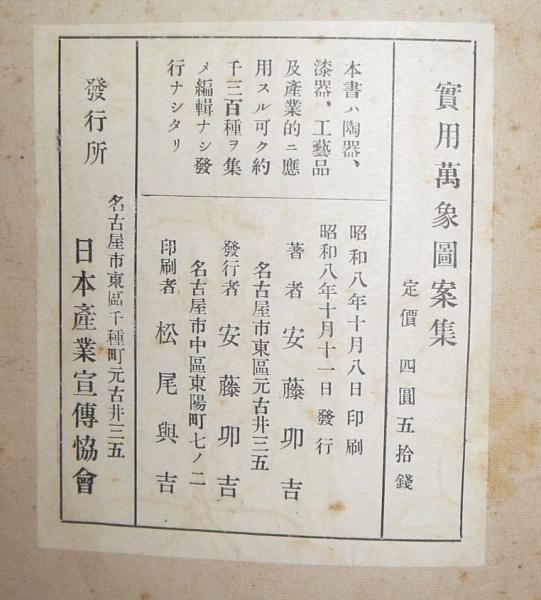 實用萬象圖案集
定價 四圓五拾錢
本書ハ陶器、
漆器、工藝品
及產業的ニ應
用スル可ク約
千三百種ヲ集
メ編輯ナシ發
行ナシタリ
昭和八年十月八日印刷
昭和八年十月十一日發行
著者 安藤卯吉
名古屋市東區元古井三五
發行者 安藤卯吉
名古屋市中區東陽町七ノ二
印刷者 松尾與吉
發行所
名古屋市東區千種町元古井三五
日本產業宣傳協會